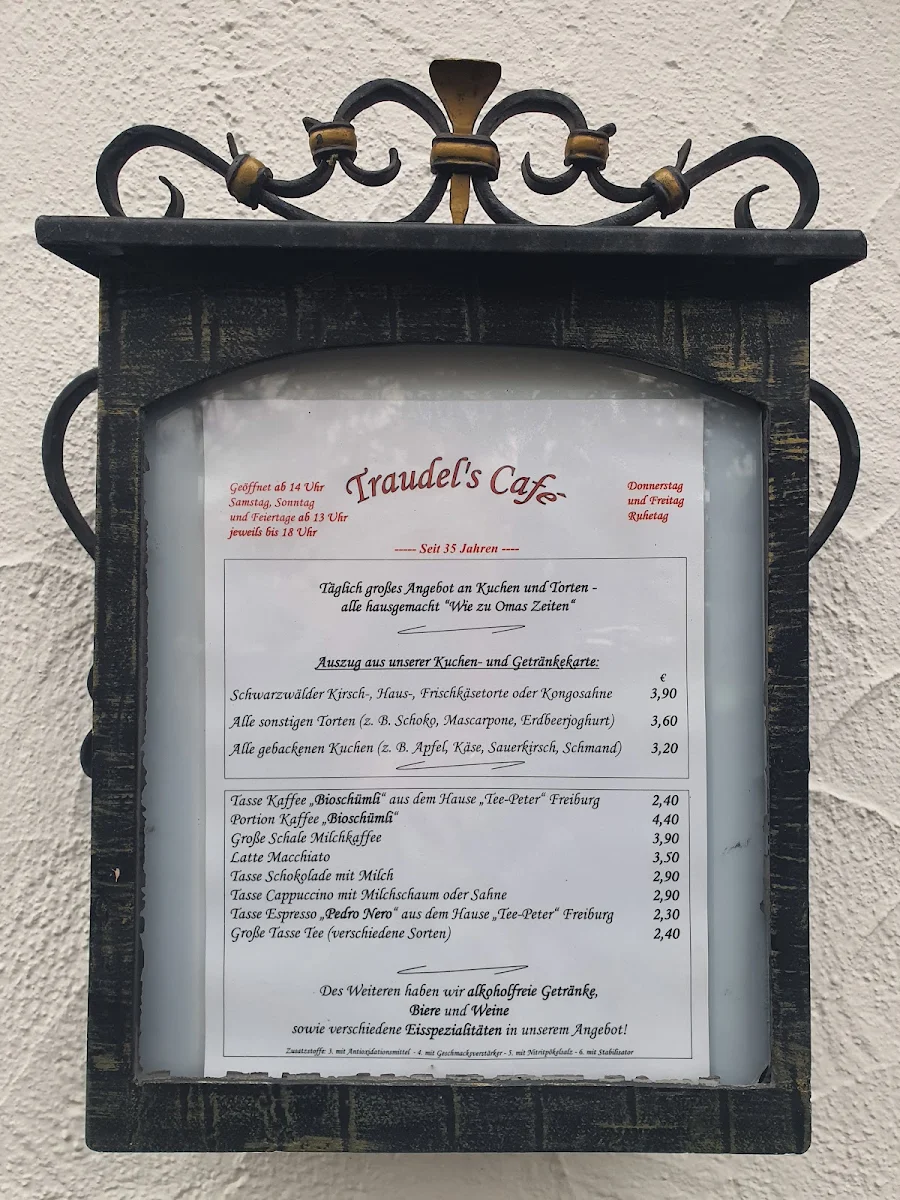 Traudel's Café
Geöffnet ab 14 Uhr
Samstag, Sonntag
und Feiertage ab 13 Uhr
jeweils bis 18 Uhr
Donnerstag
und Freitag
Ruhetag
----- Seit 35 Jahren ----
Täglich großes Angebot an Kuchen und Torten -
alle hausgemacht "Wie zu Omas Zeiten"
Auszug aus unserer Kuchen- und Getränkekarte:
€
Schwarzwälder Kirsch-, Haus-, Frischkäsetorte oder Kongosahne 3,90
Alle sonstigen Torten (z. B. Schoko, Mascarpone, Erdbeerjoghurt) 3,60
Alle gebackenen Kuchen (z. B. Apfel, Käse, Sauerkirsch, Schmand) 3,20
Tasse Kaffee „Bioschümli“ aus dem Hause „Tee-Peter“ Freiburg 2,40
Portion Kaffee „Bioschümli“ 4,40
Große Schale Milchkaffee 3,90
Latte Macchiato 3,50
Tasse Schokolade mit Milch 2,90
Tasse Cappuccino mit Milchschaum oder Sahne 2,90
Tasse Espresso „Pedro Nero“ aus dem Hause „Tee-Peter“ Freiburg 2,30
Große Tasse Tee (verschiedene Sorten) 2,40
Des Weiteren haben wir alkoholfreie Getränke,
Biere und Weine
sowie verschiedene Eisspezialitäten in unserem Angebot!
Zusatzstoffe: 3. mit Antioxidationsmittel - 4. mit Geschmacksverstärker - 5. mit Nitritpökelsalz - 6. mit Stabilisator